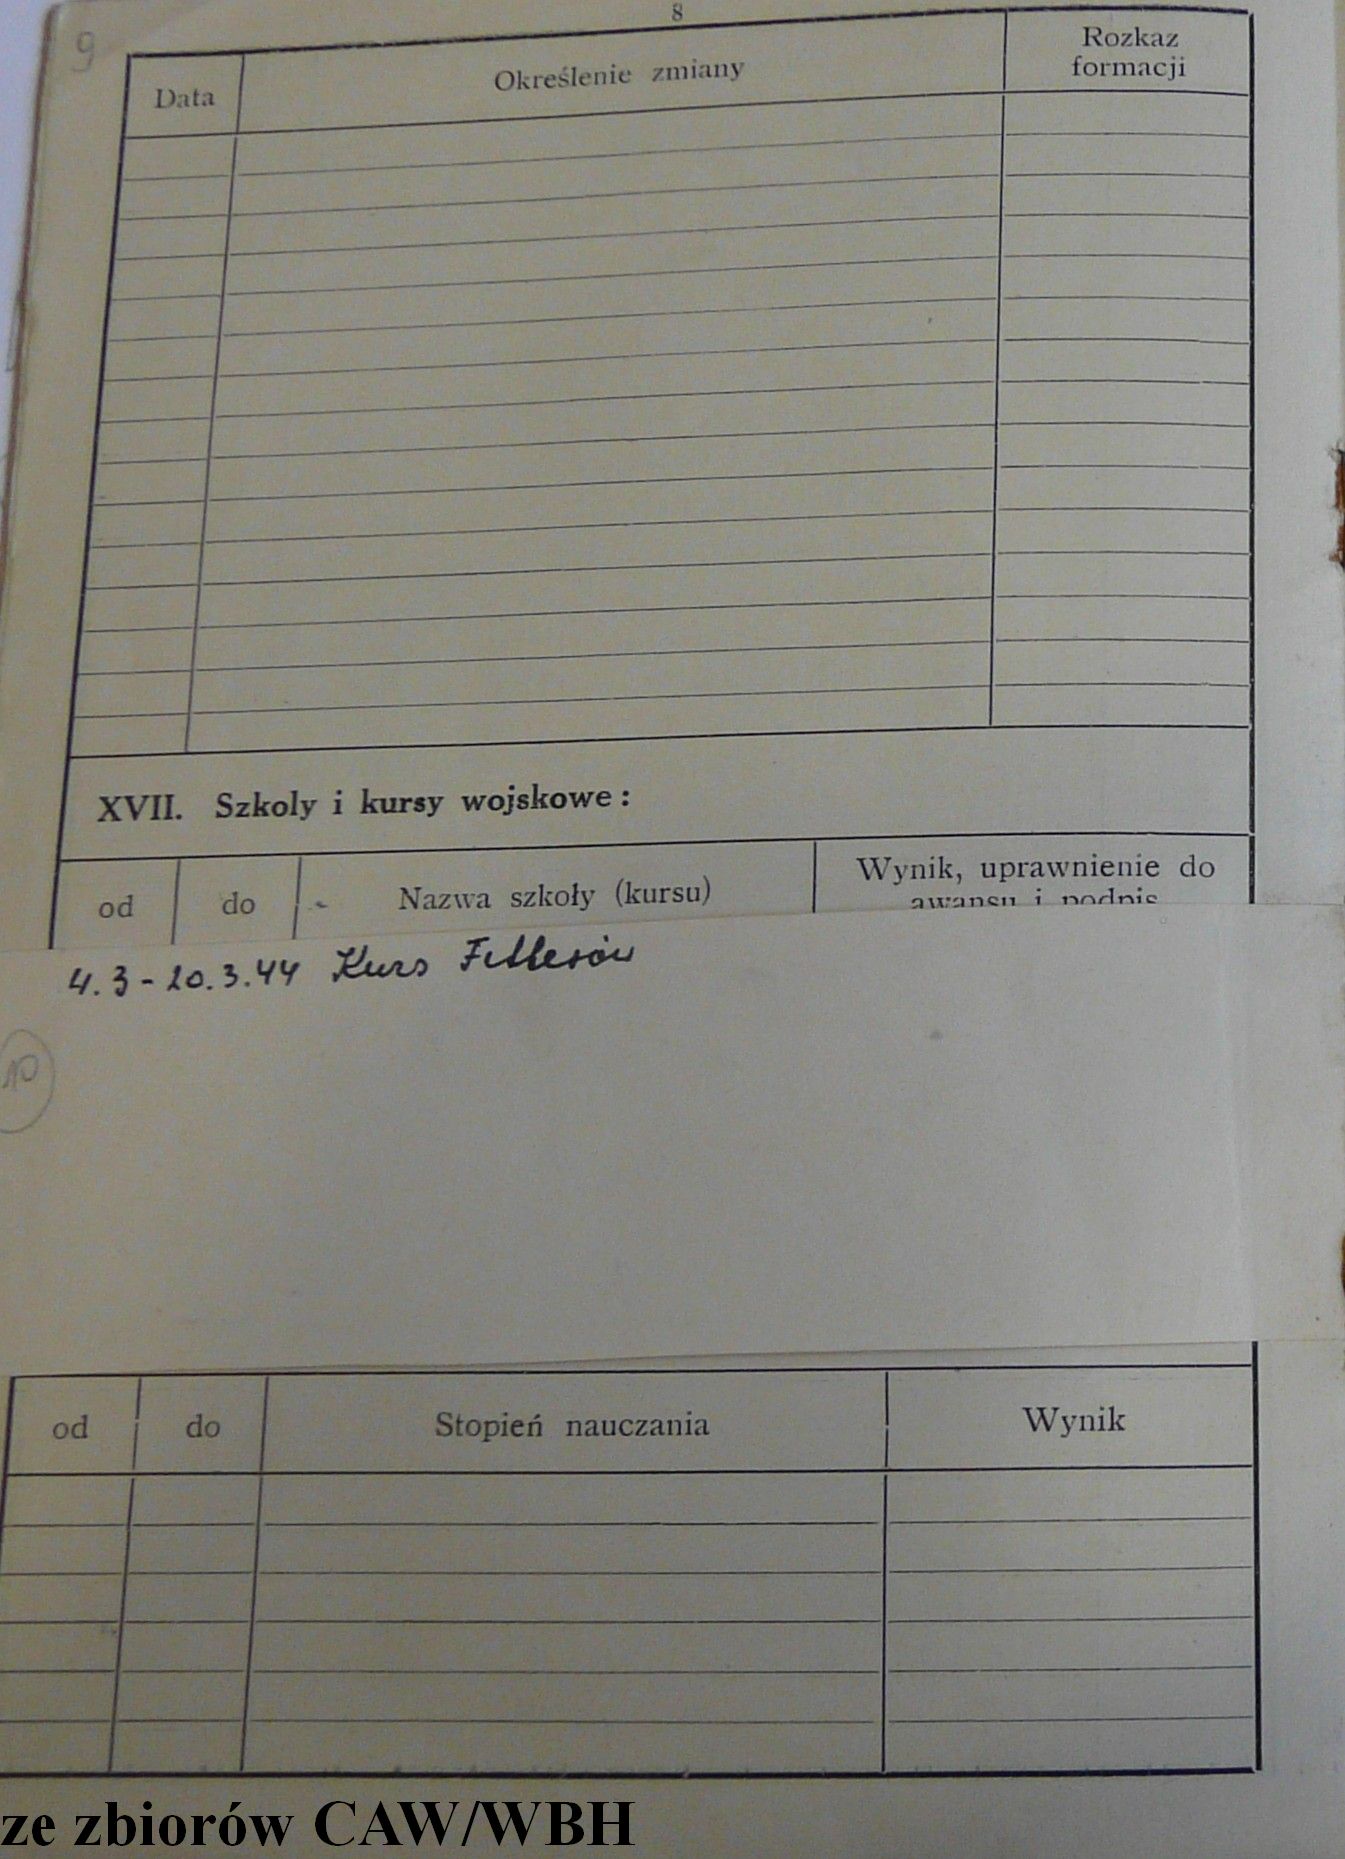 8
9
Data
Określenie zmiany
Rozkaz
formacji
XVII. Szkoly i kursy wojskowe:
od
do
Nazwa szkoły (kursu)
Wynik, uprawnienie do
awansu i podpis
4.3-20.3.44 Kurs Fitterów
10
od
do
Stopień nauczania
Wynik
ze zbiorów CAW/WBH